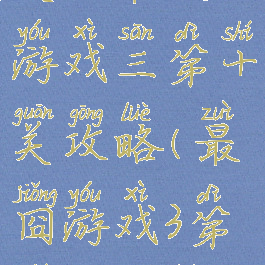 yóu xì sān dì shí
游戏三第十
guān gōng lüè zuì
关攻略(最
jiǒng yóu xì dì
囧游戏3第